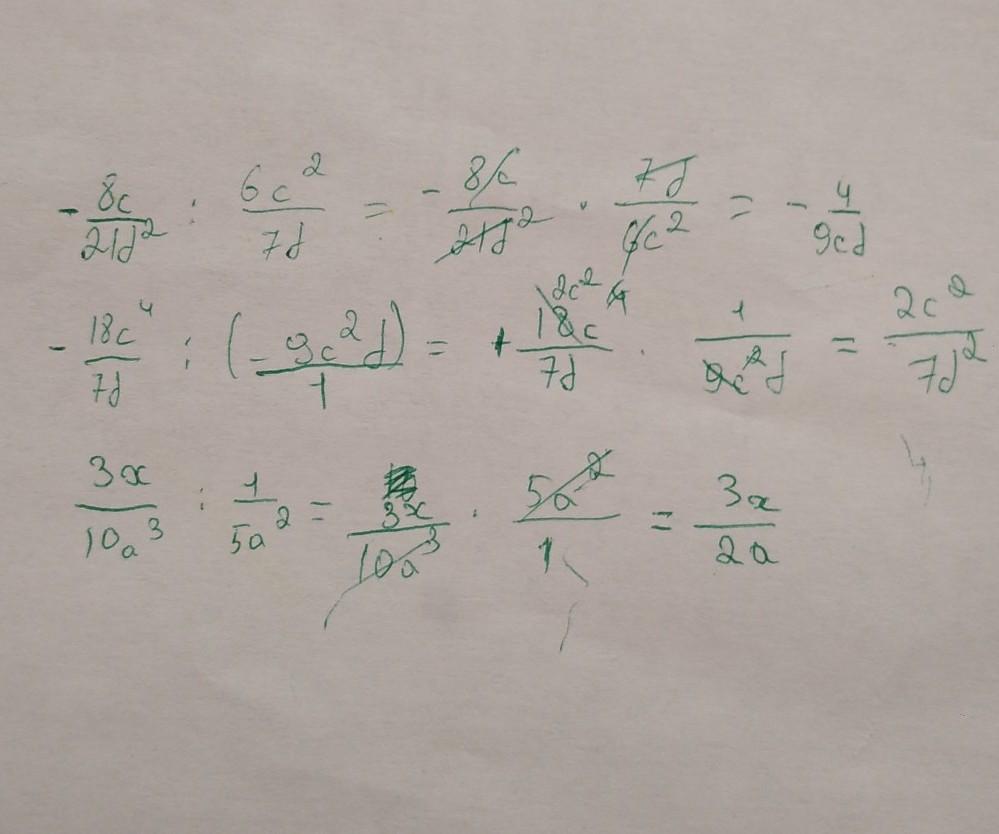 -8c/21d² : 6c²/7d = -8c/21d² · 7d/6c² = -4/9cd
-18c⁴/7d : (-9c²d/1) = +18c⁴/7d · 1/9c²d = 2c²/7d²
3x/10a³ : 1/5a² = 3x/10a³ · 5a²/1 = 3x/2a